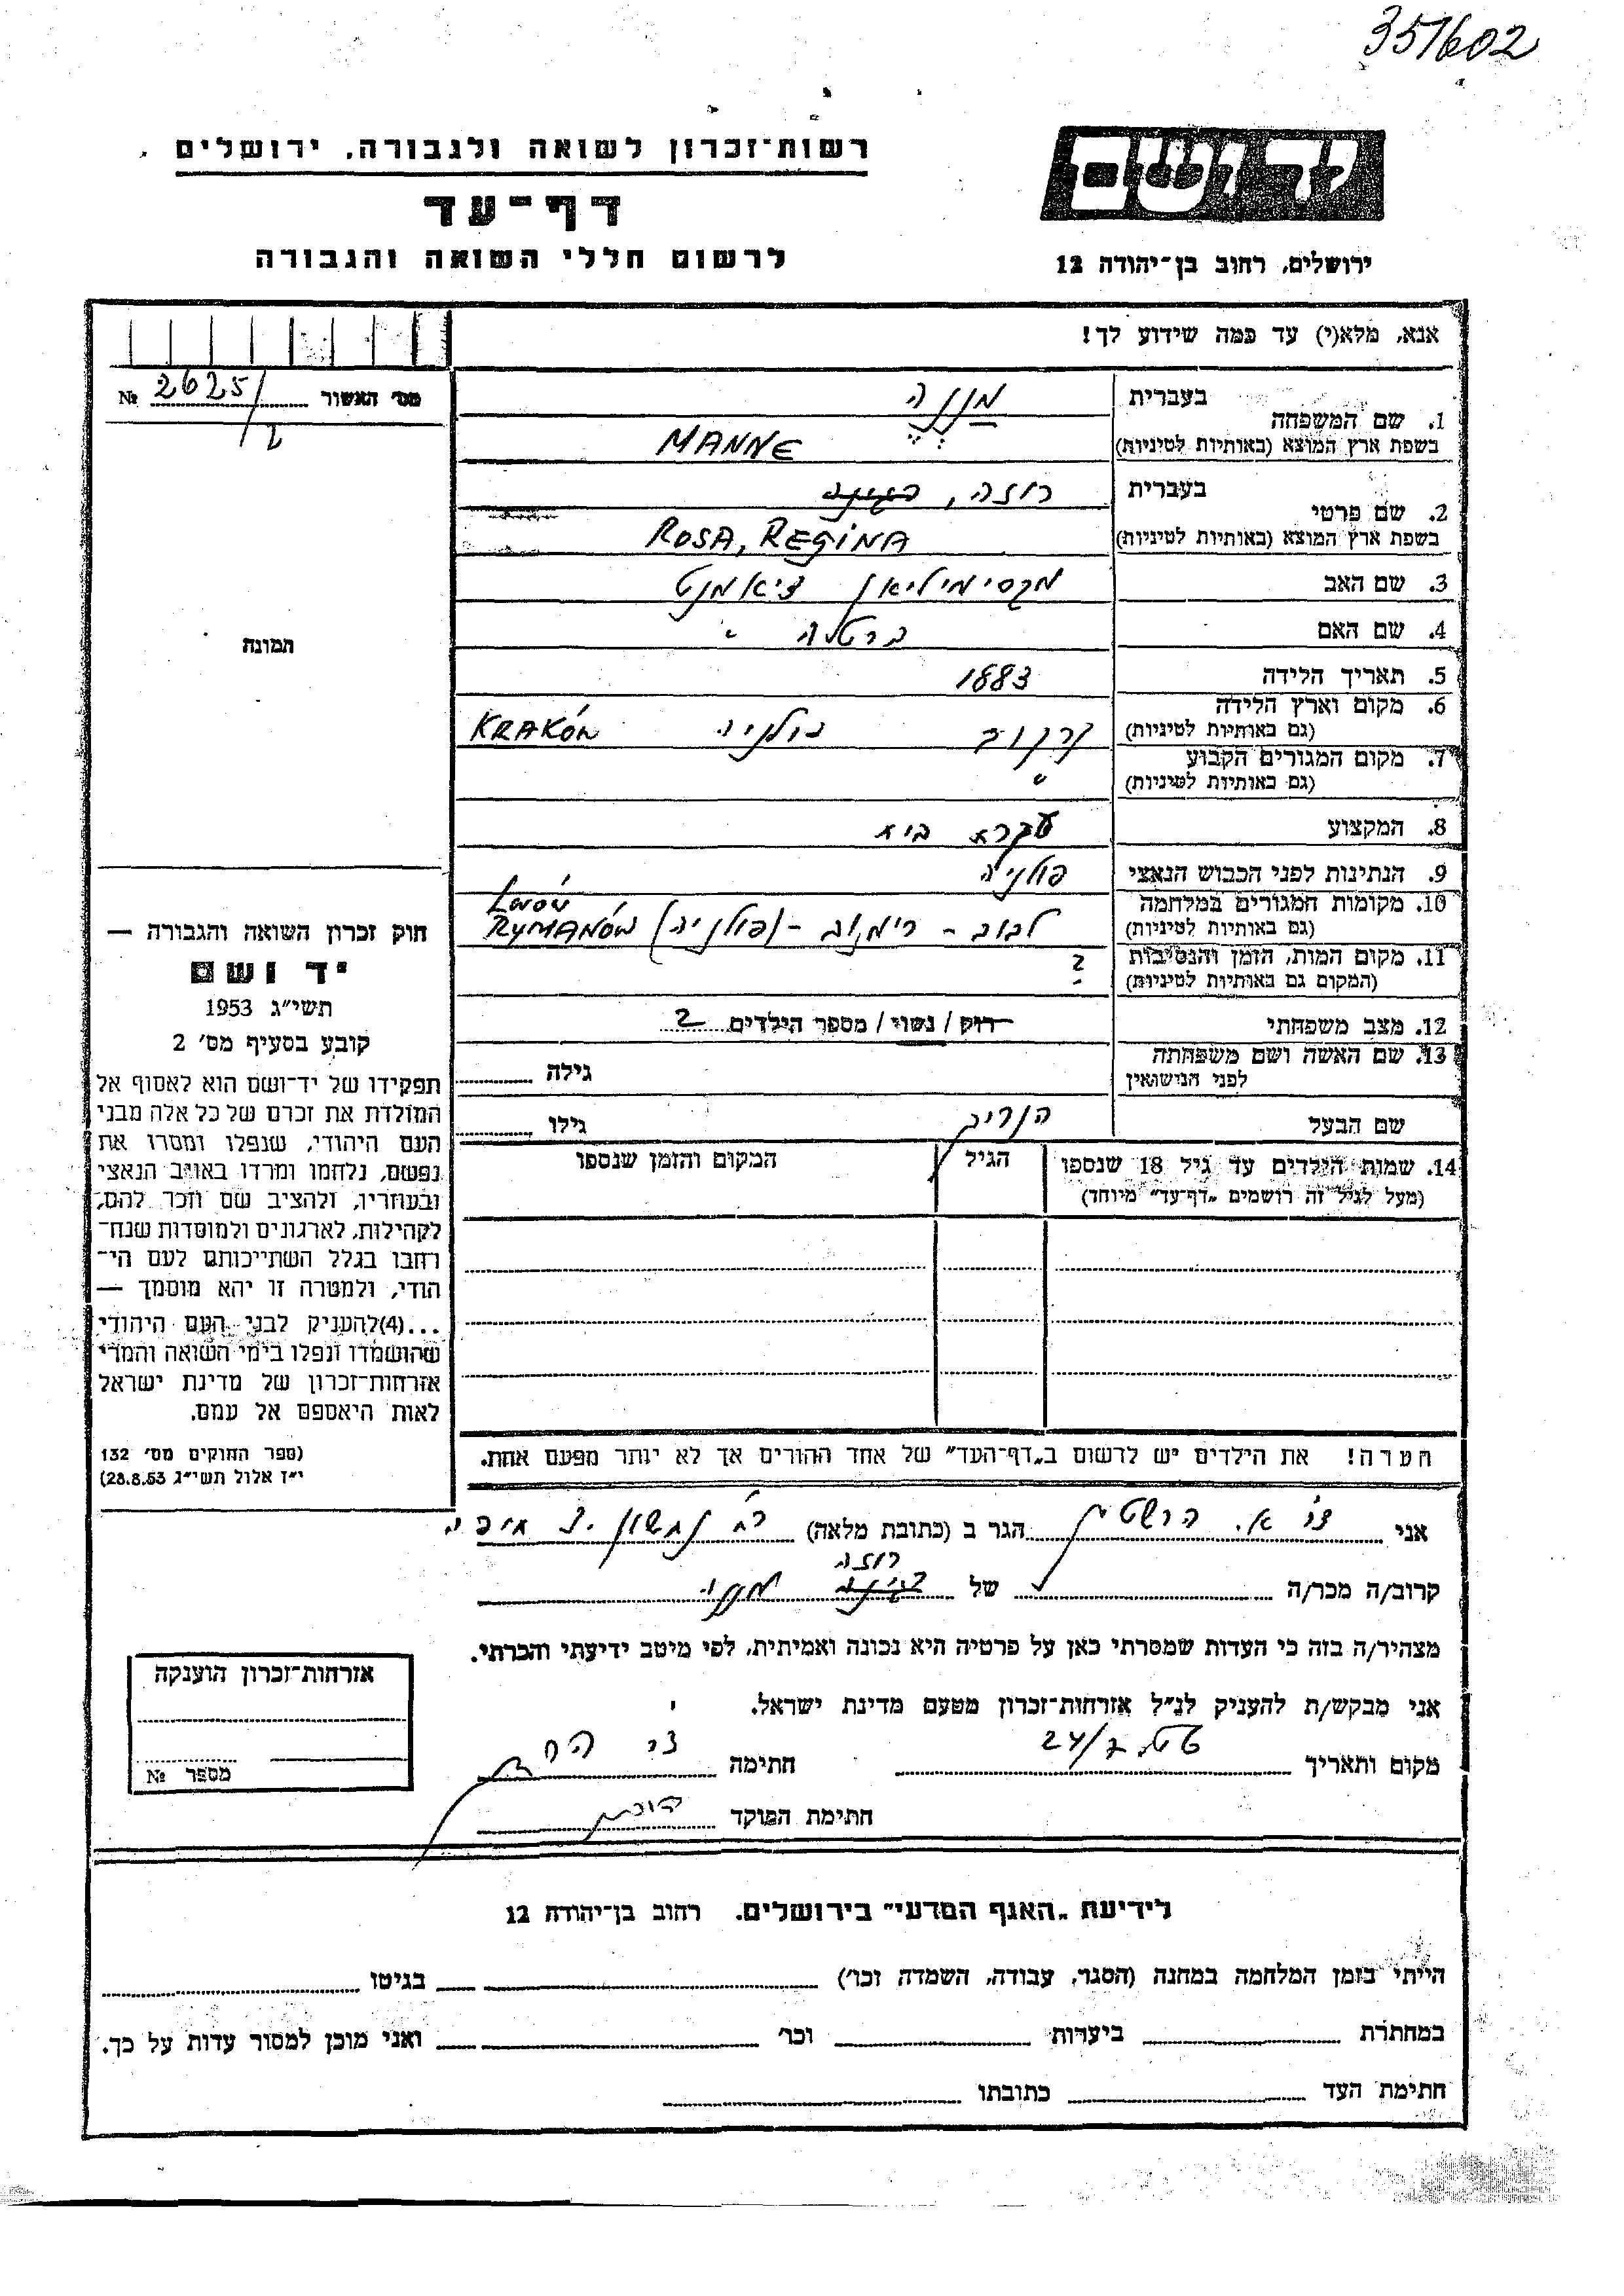 351602
רשות־זכרון לשואה ולגבורה, ירושלים
דף־עד
לרשום חללי השואה והגבורה
יד ושם
ירושלים, רחוב בן־יהודה 12
אנא, מלא(י) עד כמה שידוע לך!
מס׳ האשור 2625/2 №
1. שם המשפחה
בעברית מננה
בשפת ארץ המוצא (באותיות לטיניות) MANNE
2. שם פרטי
בעברית רוזה, רגינה
בשפת ארץ המוצא (באותיות לטיניות) ROSA, REGINA
3. שם האב מקסימיליאן דיאמנט
4. שם האם ברטה "
5. תאריך הלידה 1883
6. מקום וארץ הלידה קרקוב פולניה KRAKÓW
(גם באותיות לטיניות)
7. מקום המגורים הקבוע "
(גם באותיות לטיניות)
8. המקצוע עקרת בית
9. הנתינות לפני הכבוש הנאצי פולניה
10. מקומות המגורים במלחמה Lwów
(גם באותיות לטיניות) לבוב - רימנוב - (פולניה) RYMANÓW
11. מקום המות, הזמן והנסיבות ?
(המקום גם באותיות לטיניות)
12. מצב משפחתי רווק / נשוי / מספר הילדים 2
13. שם האשה ושם משפחתה
לפני הנישואין גילה
שם הבעל הנריק גילו
14. שמות הילדים עד גיל 18 שנספו הגיל המקום והזמן שנספו
(מעל לגיל זה רושמים „דף־עד״ מיוחד)
הערה! את הילדים יש לרשום ב„דף־העד״ של אחד ההורים אך לא יותר מפעם אחת.
תמונה
חוק זכרון השואה והגבורה —
יד ושם
תשי״ג 1953
קובע בסעיף מס׳ 2
תפקידו של יד־ושם הוא לאסוף אל
המולדת את זכרם של כל אלה מבני
העם היהודי, שנפלו ומסרו את
נפשם, נלחמו ומרדו באויב הנאצי
ובעוזריו, ולהציב שם וזכר להם,
לקהילות, לארגונים ולמוסדות שנח־
רבו בגלל השתייכותם לעם הי־
הודי, ולמטרה זו יהא מוסמך —
...(4) להעניק לבני העם היהודי
שהושמדו ונפלו בימי השואה והמרי
אזרחות־זכרון של מדינת ישראל
לאות היאספם אל עמם.
(ספר החוקים מס׳ 132
י״ז אלול תשי״ג 28.8.53)
אני הגר ב (כתובת מלאה) חיפה
רוזה
קרוב/ה מכר/ה של רגינה מננה
מצהיר/ה בזה כי העדות שמסרתי כאן על פרטיה היא נכונה ואמיתית, לפי מיטב ידיעתי והכרתי.
אני מבקש/ת להעניק לנ״ל אזרחות־זכרון מטעם מדינת ישראל.
מקום ותאריך 24/7 חתימה
חתימת הפוקד
אזרחות־זכרון הוענקה
מספר №
לידיעת „האגף המדעי״ בירושלים, רחוב בן־יהודה 12
הייתי בזמן המלחמה במחנה (הסגר, עבודה, השמדה וכו׳) בגיטו
במחתרת ביערות וכו׳ ואני מוכן למסור עדות על כך.
חתימת העד כתובתו